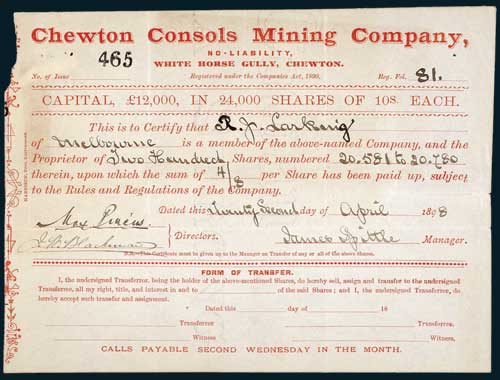 Chewton Consols Mining Company,
NO-LIABILITY,
WHITE HORSE GULLY, CHEWTON.
No. of Issue 465 Registered under the Companies Act, 1890. Reg. Fol. 81.
CAPITAL, £12,000, IN 24,000 SHARES OF 10s. EACH.
This is to Certify that R. J. Larking
of Melbourne is a member of the above-named Company, and the
Proprietor of Two Hundred Shares, numbered 20.581 to 20.780
therein, upon which the sum of 4/8 per Share has been paid up, subject
to the Rules and Regulations of the Company.
Dated this Twenty Second day of April 1898
Max
Directors. James Spittle Manager.
N.B.—This Certificate must be given up to the Manager on Transfer of any or all of the above shares.
FORM OF TRANSFER.
I, the undersigned Transferror, being the holder of the above-mentioned Shares, do hereby sell, assign and transfer to the undersigned
Transferree, all my right, title, and interest in and to of the said Shares; and I, the undersigned Transferree, do
hereby accept such transfer and assignment.
Dated this day of 18
Transferror Transferree
Witness Witness
CALLS PAYABLE SECOND WEDNESDAY IN THE MONTH.